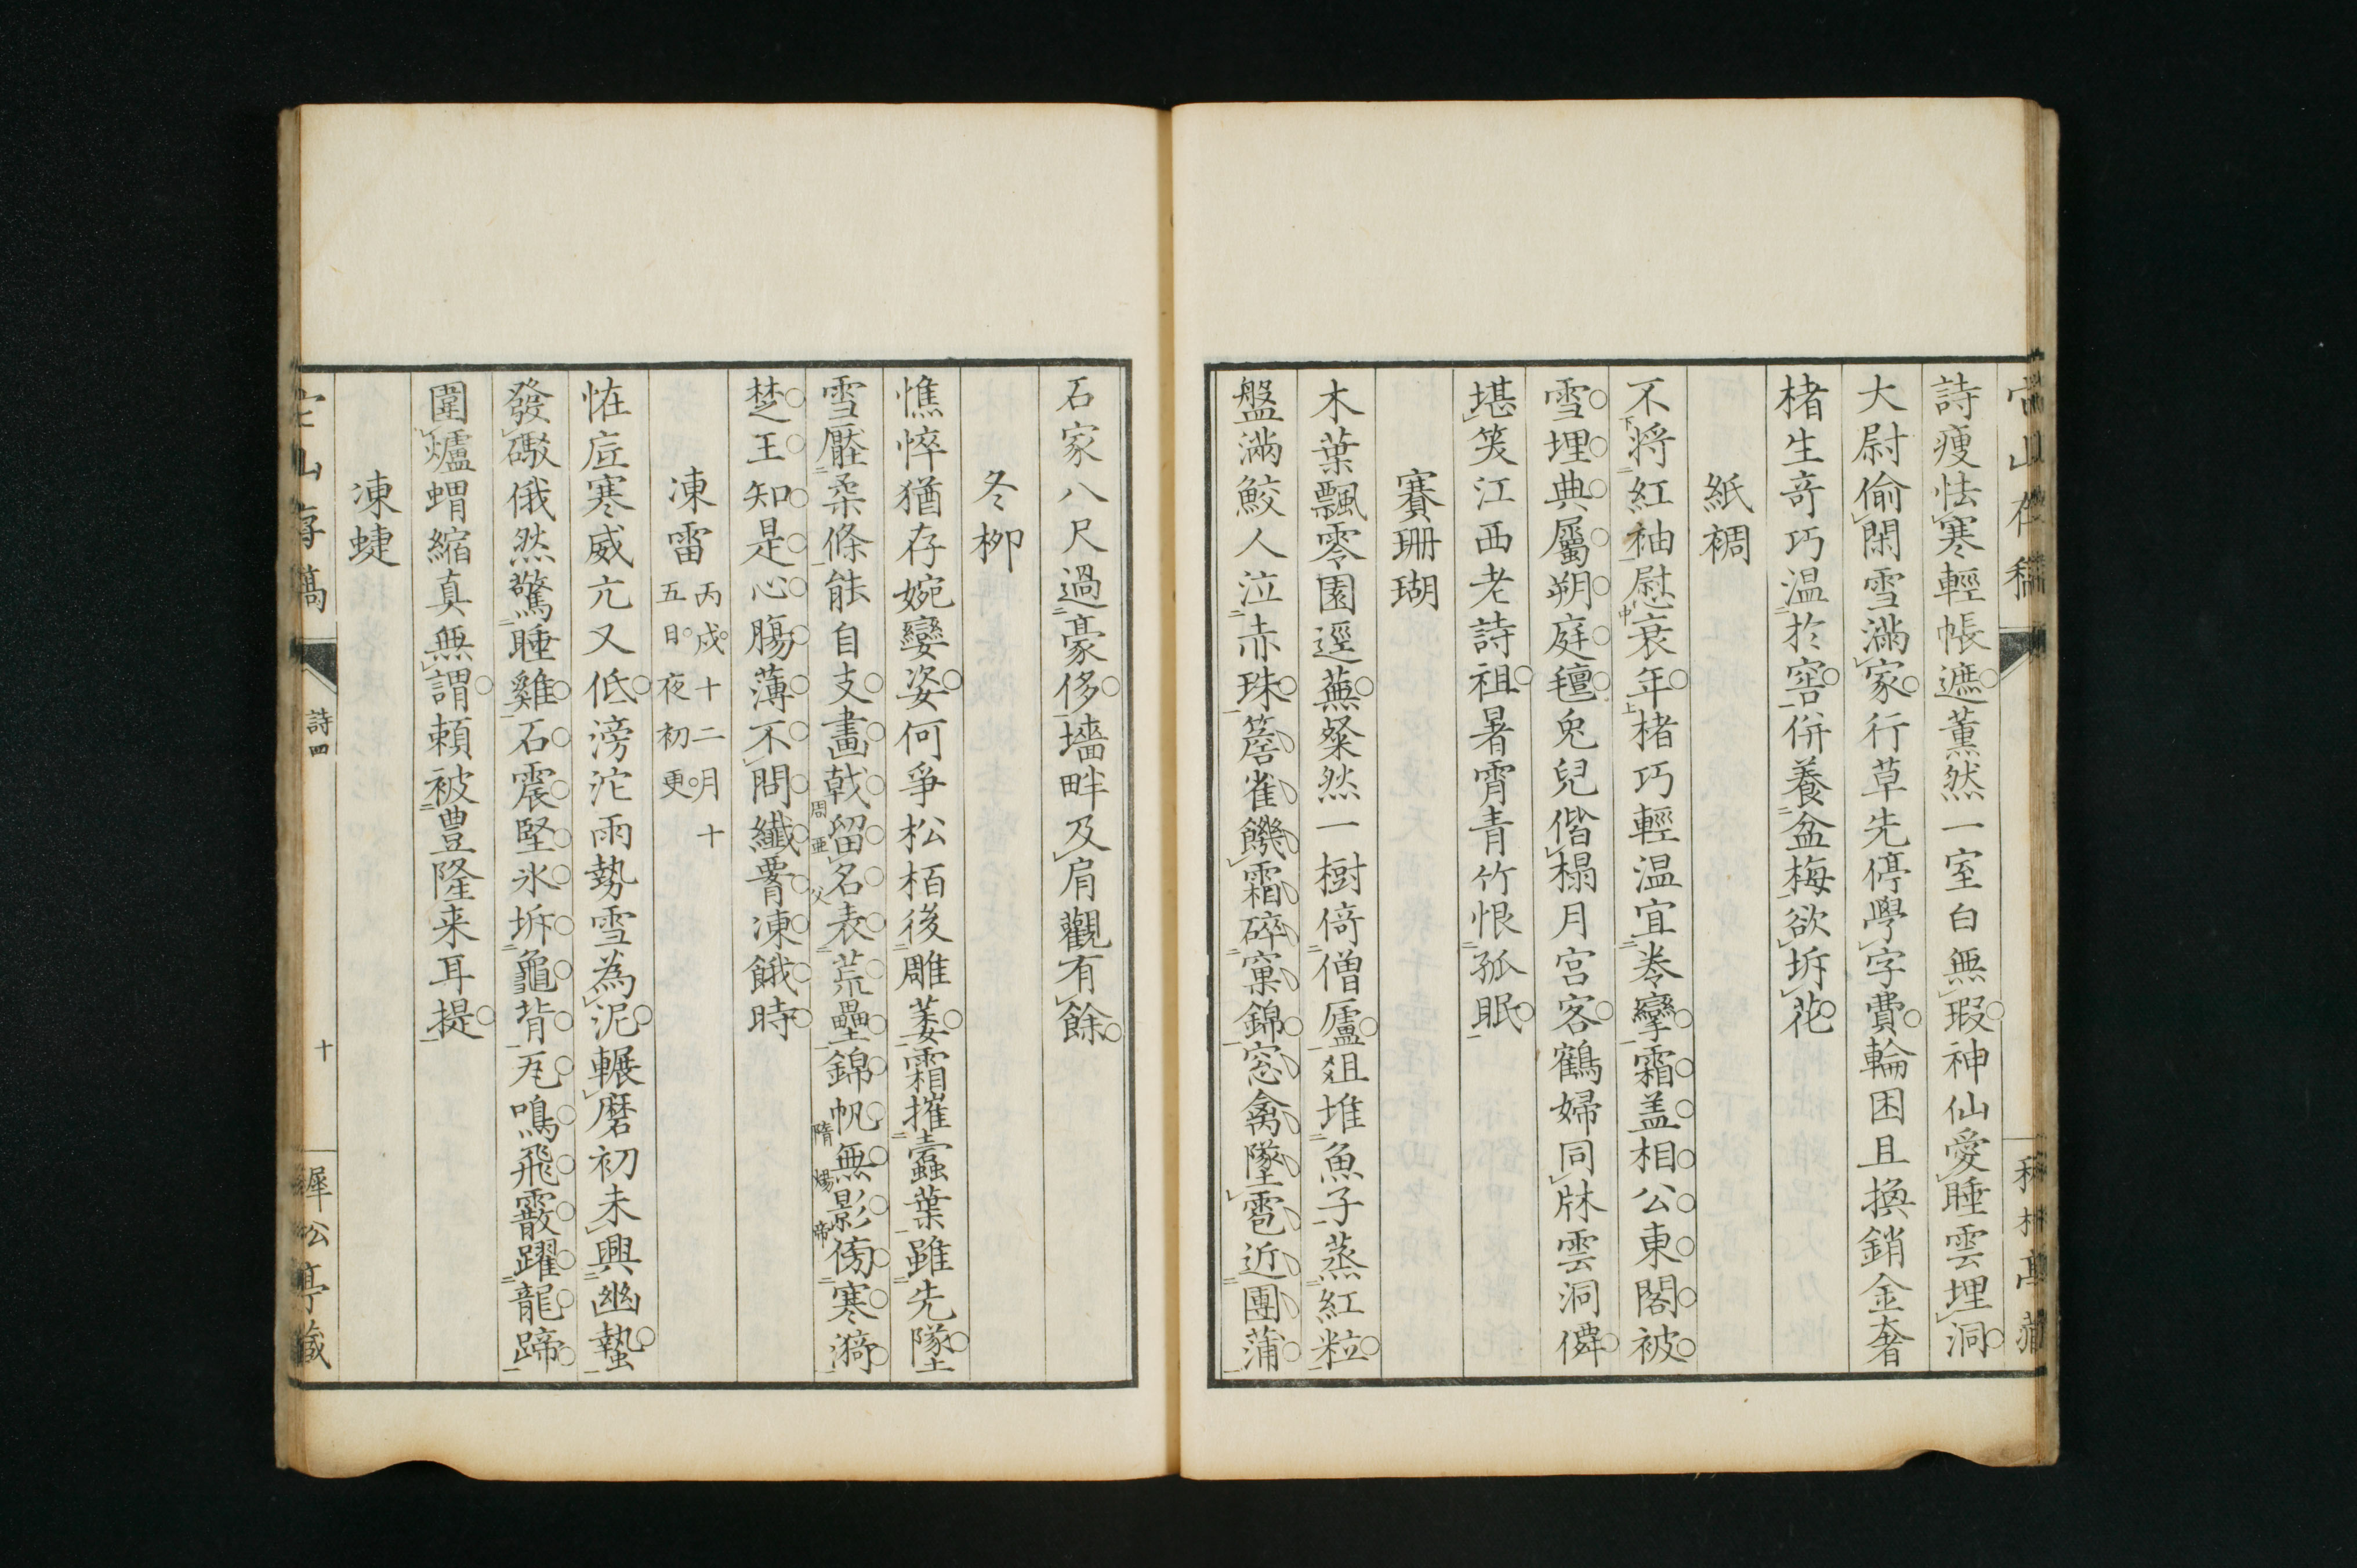 詩瘦怯寒輕帳遮薫然一室白無瑕神仙愛睡雲埋洞
大尉偷閑雪滿家行草先停學字費輪囷且換銷金奢
楮生奇巧温於窖併養盆梅欲坼花
紙裯
不將紅袖慰衰年楮巧輕温宜拳攣霜盖相公東閣被
雪埋典屬朔庭氊兔兒偕榻月宮客鶴婦同牀雲洞僊
堪笑江西老詩祖暑霄青竹恨孤眠
賽珊瑚
木葉飄零園逕蕪粲然一樹倚僧廬俎堆魚子蒸紅粒
盤滿鮫人泣赤珠簷雀饑霜碎窠錦窓禽墜雹近團蒲
石家八尺過豪侈墻畔及肩觀有餘
冬栁
憔悴猶存婉孌姿何爭松栢後雕萎霜摧蠧葉雖先墜
雪壓柔條能自支畫戟留名表荒壘錦帆無影傍寒漪
周亞父
隋煬帝
楚王知是心膓薄不問纖腰凍餓時
凍雷
丙戍十二月十
五日夜初更
恠底寒威亢又低滂沱雨勢雪為泥輾磨初未興幽蟄
發礮俄然驚睡雞石震堅氷坼龜背瓦鳴飛霰躍龍蹄
圍爐蝟縮真無謂頼被豊隆来耳提
凍蜨
山存稿
詩四
十
犀公亭藏